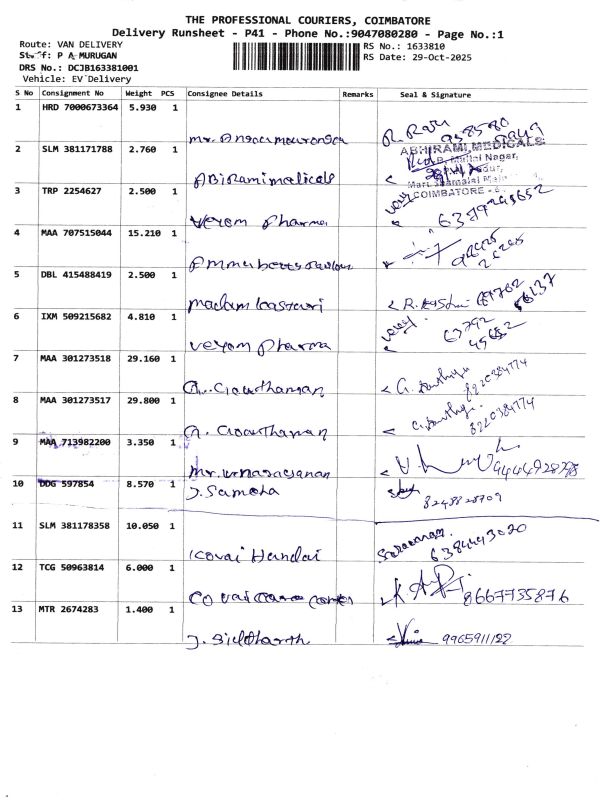 THE PROFESSIONAL COURIERS, COIMBATORE
Delivery Runsheet - P41 - Phone No.:9047080280 - Page No.:1
Route: VAN DELIVERY
RS No.: 1633810
Staff: P A MURUGAN
RS Date: 29-Oct-2025
DRS No.: DCJB163381001
Vehicle: EV Delivery
S No Consignment No Weight PCS Consignee Details Remarks Seal & Signature
1 HRD 7000673364 5.930 1
mr.
2 SLM 381171788 2.760 1
ABHIRAMI MEDICALS
Nagar,
COIMBATORE
ABiramimedicals
3 TRP 2254627 2.500 1
Veyom Pharma 6379245652
4 MAA 707515044 15.210 1
5 DBL 415488419 2.500 1
madam kasturi
6 IXM 509215682 4.810 1
veyom Pharma 63792 45652
7 MAA 301273518 29.160 1
G. Gowthaman 8220384774
8 MAA 301273517 29.800 1
G. Gowthaman 8220384774
9 MAA 713982200 3.350 1
mr. 9444928798
10 DDG 597854 8.570 1
J. 8248828709
11 SLM 381178358 10.050 1
Kovai Saravanan 6384443020
12 TCG 50963814 6.000 1
Covai care 8667735876
13 MTR 2674283 1.400 1
J. Siddharth 9965911122